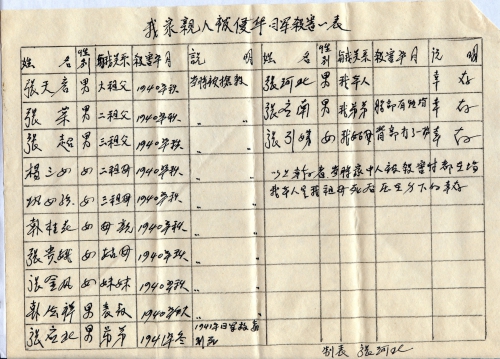 我家親人被侵华日军殺害一表
姓名 性别 与我关系 殺害年月 説明 姓名 性别 与我关系 殺害年月 説明
張天 男 大祖父 1940年秋 当時被 張河北 男 我本人 幸存
張荣 男 二祖父 1940年秋 〃 〃 張 南 男 我弟弟 幸存
張起 男 三祖父 1940年秋 〃 〃 張引 女 我 母 背部 幸存
楊三女 女 二祖母 1940年秋 〃 〃 以上 存者当時家中人被殺害时都在場
女 三祖母 1940年秋 〃 〃 我本人是我祖母死 在 下的幸存
郭桂花 女 母親 1940年秋 〃
張貴娥 女 母 1940年秋 〃
張金鳳 女 妹妹 1940年秋 〃
郭 祥 男 表叔 1940年秋 〃 〃
張 北 男 弟弟 1941年冬 1941年日軍
制表 張河北